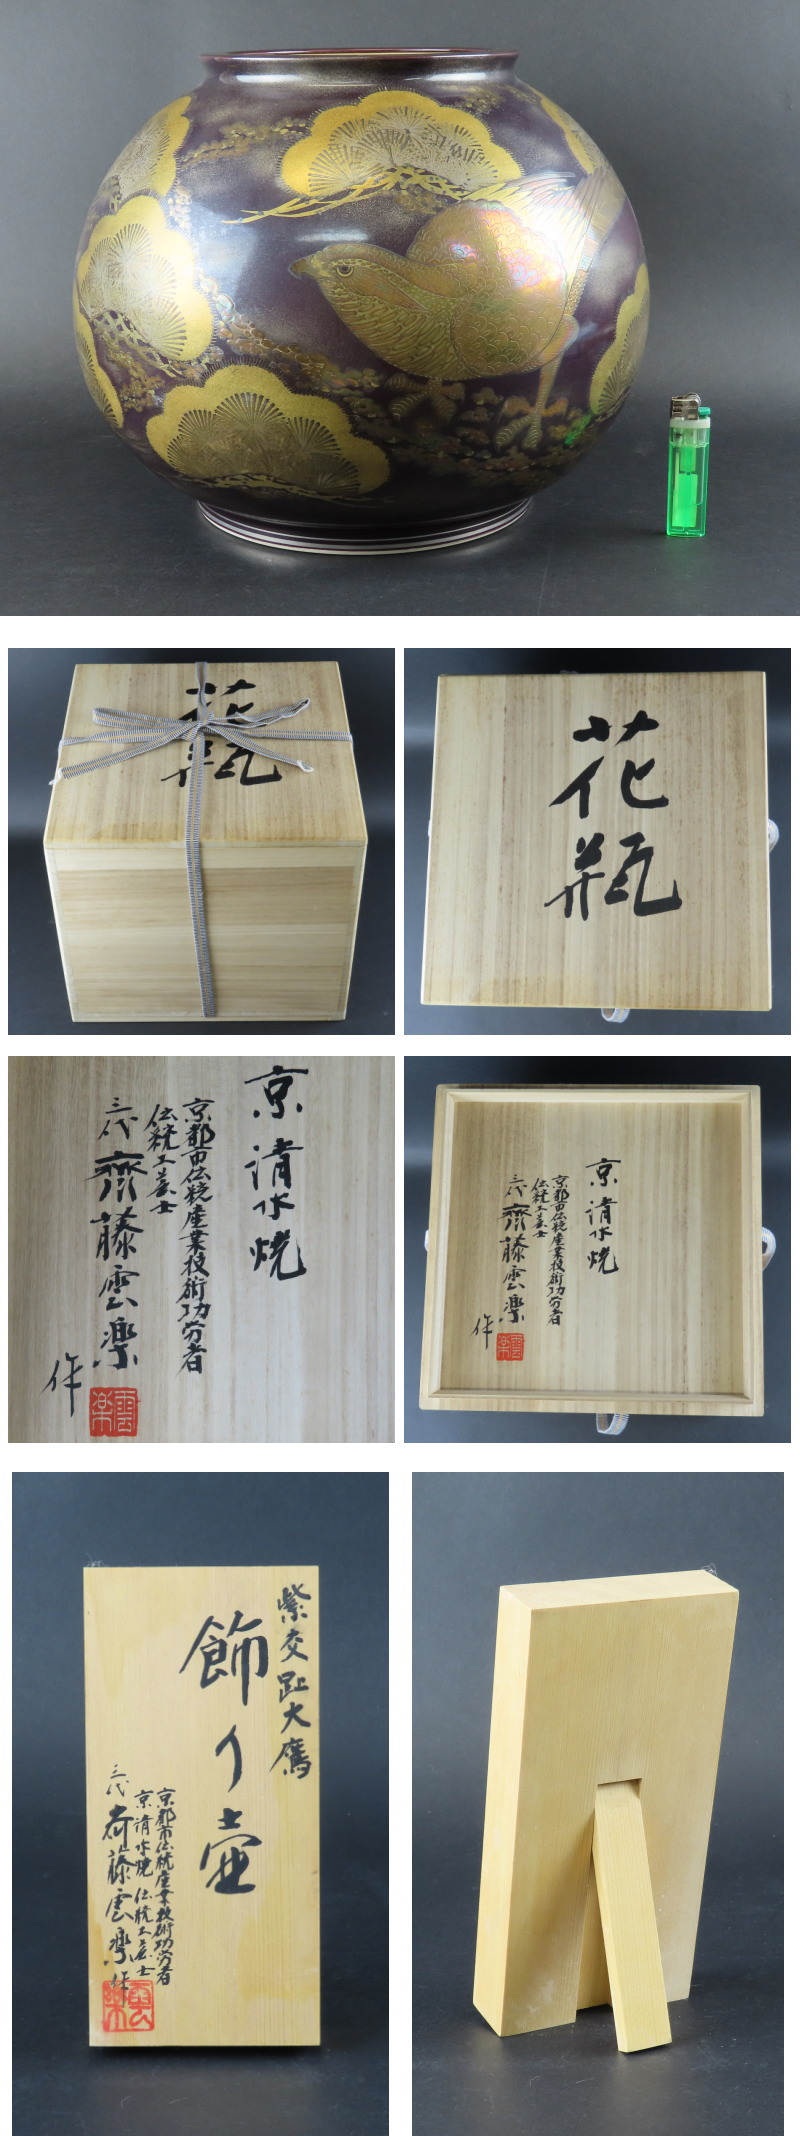 花
瓶
花
瓶
京清水焼
京都市伝統産業技術功労者
伝統工芸士
三代 齊藤雲楽
作
雲楽
京清水焼
京都市伝統産業技術功労者
伝統工芸士
三代 齊藤雲楽
作
雲楽
紫交趾大鷹
飾り壷
京都市伝統産業技術功労者
京清水焼 伝統工芸士
三代 斉藤雲楽
作
雲楽